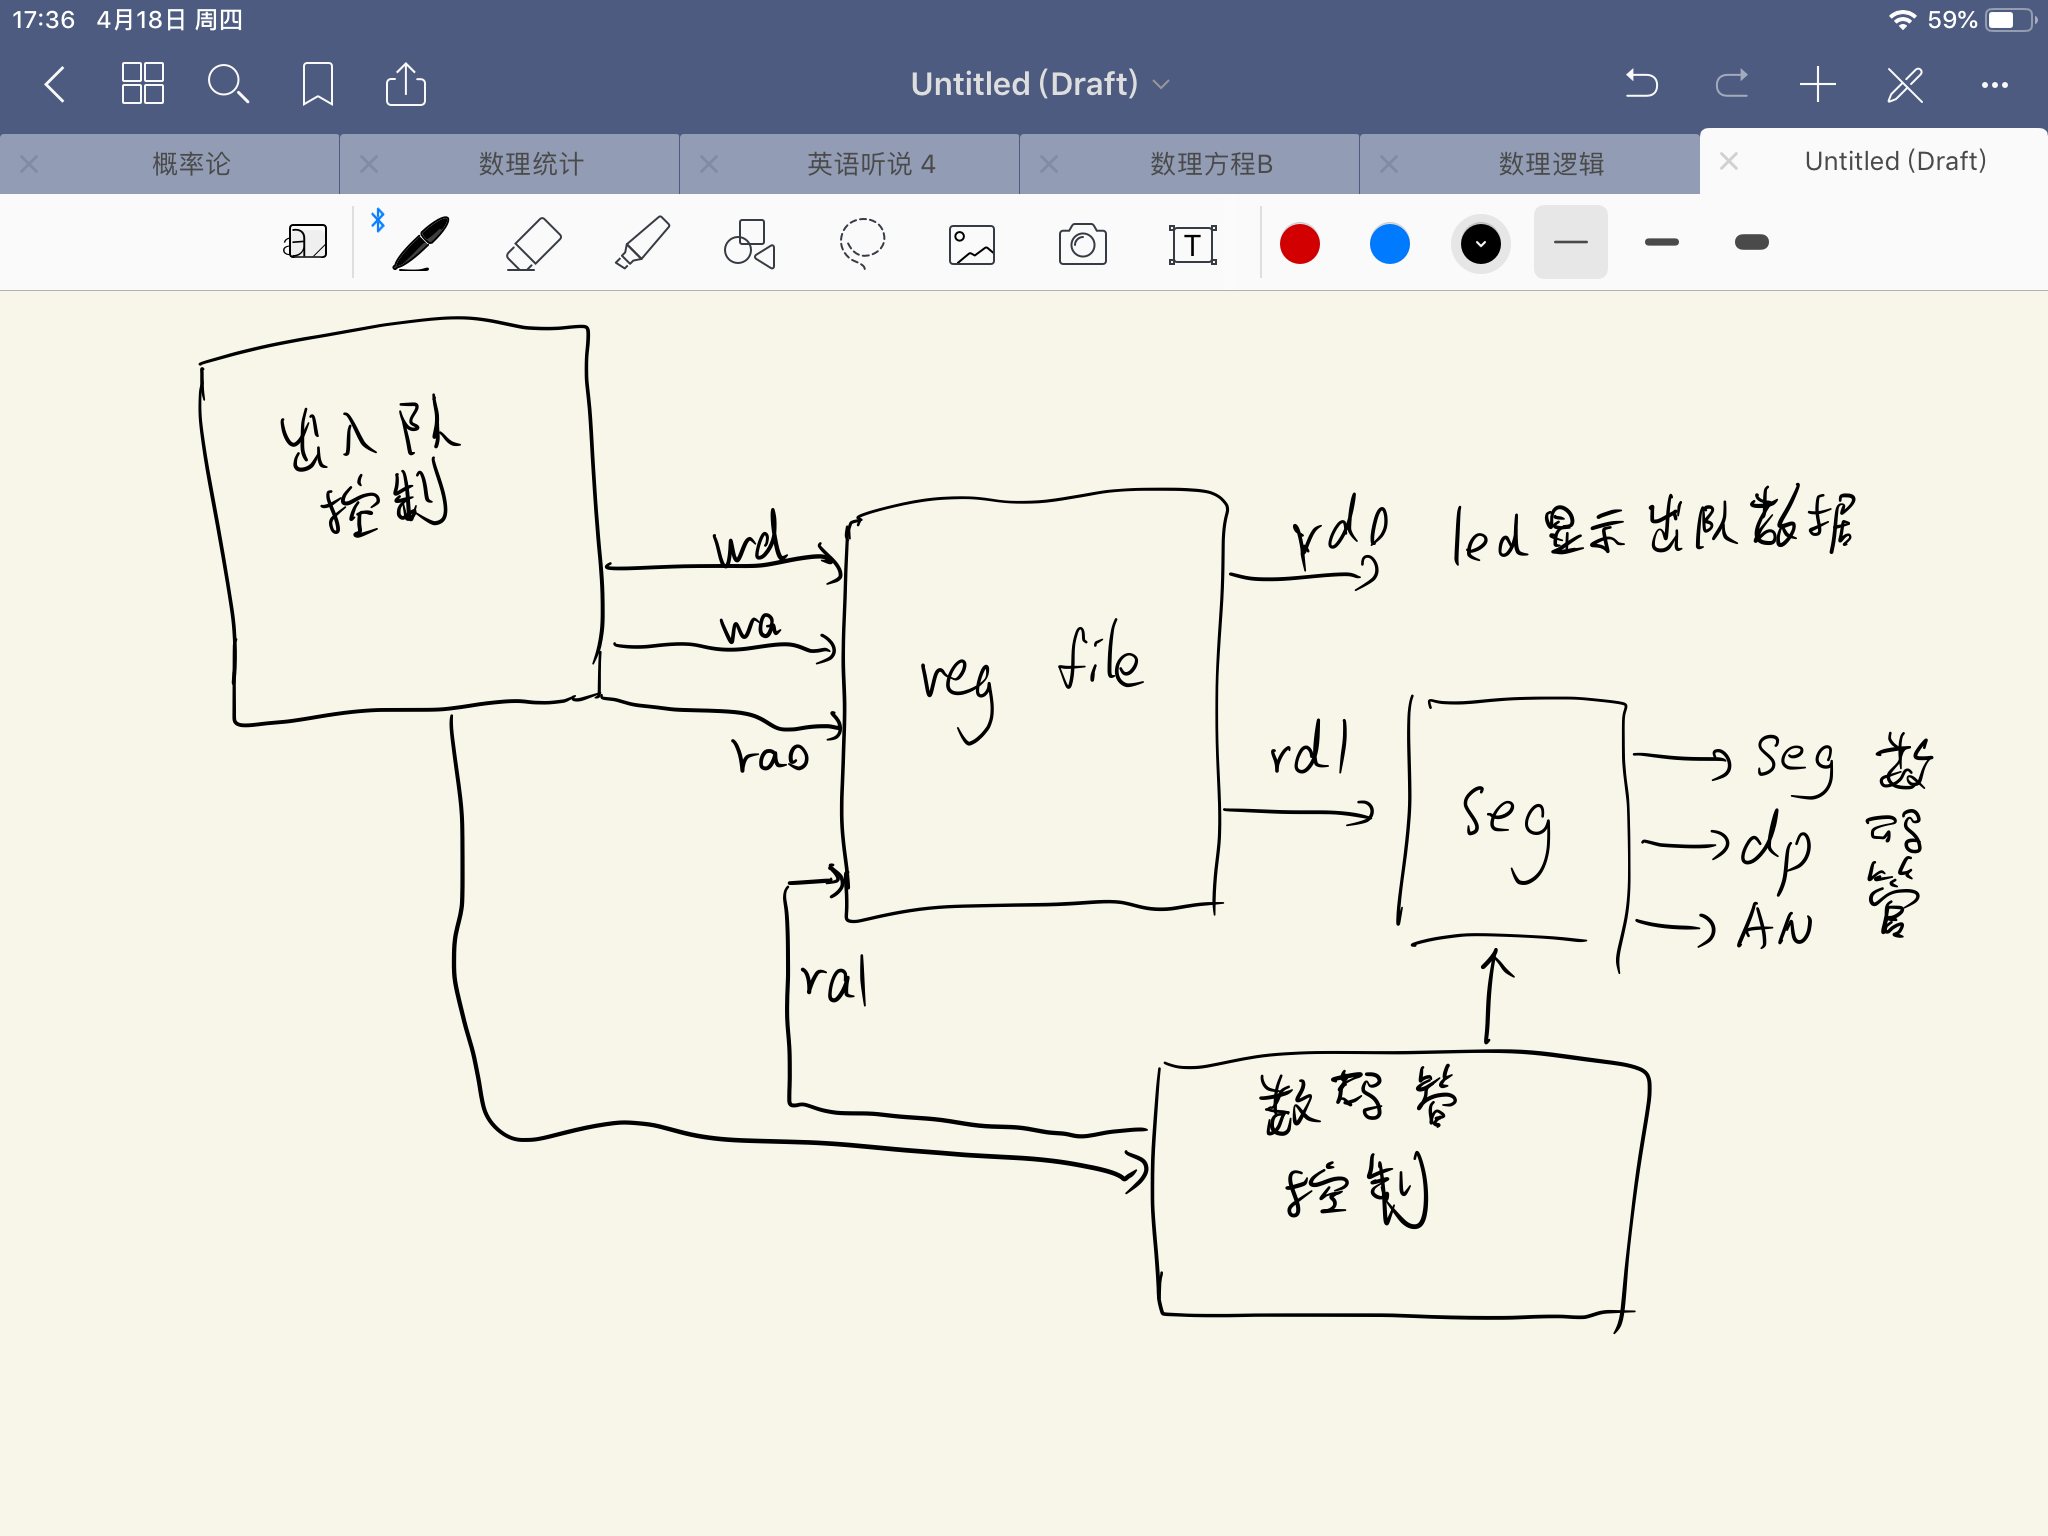 17:36 4月18日 周四
59%
Untitled (Draft)
概率论
数理统计
英语听说 4
数理方程B
数理逻辑
Untitled (Draft)
T
出入队
控制
wd
wa
ra0
ra1
reg file
rd0
led显示出队数据
rd1
seg
seg
dp
AN
数
码
管
数码管
控制